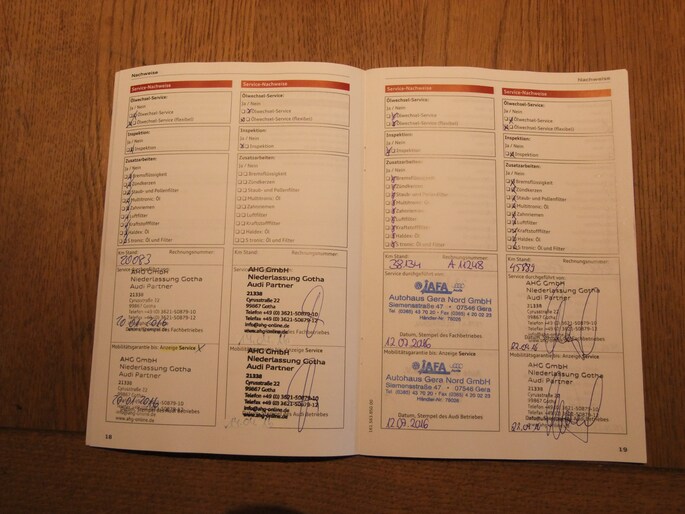 Nachweise
Service-Nachweise
Ölwechsel-Service:
Ja / Nein
Ölwechsel-Service
Ölwechsel-Service (flexibel)
Inspektion:
Ja / Nein
Inspektion
Zusatzarbeiten:
Ja / Nein
Bremsflüssigkeit
Zündkerzen
Staub- und Pollenfilter
Multitronic Öl
Zahnriemen
Luftfilter
Kraftstofffilter
Haldex Öl
S tronic: Öl und Filter
Km Stand: Rechnungsnummer:
20083
AHG GmbH
Niederlassung Gotha
Audi Partner
21336
Cyrusstraße 22
99867 Gotha
Mobilitätsgarantie bis: Anzeige Service X
AHG GmbH
Niederlassung Gotha
Audi Partner
21336
Cyrusstraße 22
99867 Gotha
www.ahg-online.de
18
Service-Nachweise
Ölwechsel-Service:
Ja / Nein
Ölwechsel-Service
Ölwechsel-Service (flexibel)
Inspektion:
Ja / Nein
Inspektion
Zusatzarbeiten:
Ja / Nein
Bremsflüssigkeit
Zündkerzen
Staub- und Pollenfilter
Multitronic Öl
Zahnriemen
Luftfilter
Kraftstofffilter
Haldex Öl
S tronic: Öl und Filter
AHG GmbH
Niederlassung Gotha
Audi Partner
21336
Cyrusstraße 22
99867 Gotha
Telefon +49 (0) 3621-50879-10
Telefax +49 (0) 3621-50879-12
info@ahg-online.de
www.ahg-online.de
AHG GmbH
Niederlassung Gotha
Audi Partner
21336
Cyrusstraße 22
99867 Gotha
Telefon +49 (0) 3621-50879-10
Telefax +49 (0) 3621-50879-12
info@ahg-online.de
www.ahg-online.de
Service-Nachweise
Ölwechsel-Service:
Ja / Nein
Ölwechsel-Service
Ölwechsel-Service (flexibel)
Inspektion:
Ja / Nein
Inspektion
Zusatzarbeiten:
Ja / Nein
Bremsflüssigkeit
Zündkerzen
Staub- und Pollenfilter
Multitronic: Öl
Zahnriemen
Luftfilter
Kraftstofffilter
Haldex: Öl
S tronic: Öl und Filter
Km Stand: Rechnungsnummer:
38134 A 11248
Service durchgeführt von:
JAFA
Autohaus Gera Nord GmbH
Siemensstraße 47 • 07546 Gera
Datum, Stempel des Fachbetriebes
12.09.2016
Mobilitätsgarantie bis: Anzeige Service
JAFA
Autohaus Gera Nord GmbH
Siemensstraße 47 • 07546 Gera
Datum, Stempel des Audi Betriebes
12.09.2016
Nachweise
Service-Nachweise
Ölwechsel-Service:
Ja / Nein
Ölwechsel-Service
Ölwechsel-Service (flexibel)
Inspektion:
Ja / Nein
Inspektion
Zusatzarbeiten:
Ja / Nein
Bremsflüssigkeit
Zündkerzen
Staub- und Pollenfilter
Multitronic: Öl
Zahnriemen
Luftfilter
Kraftstofffilter
Haldex: Öl
S tronic: Öl und Filter
Km Stand: Rechnungsnummer:
Service durchgeführt von:
AHG GmbH
Niederlassung Gotha
Audi Partner
21336
Cyrusstraße 22
99867 Gotha
Mobilitätsgarantie bis: Anzeige Service
AHG GmbH
Niederlassung Gotha
Audi Partner
21336
Cyrusstraße 22
99867 Gotha
19